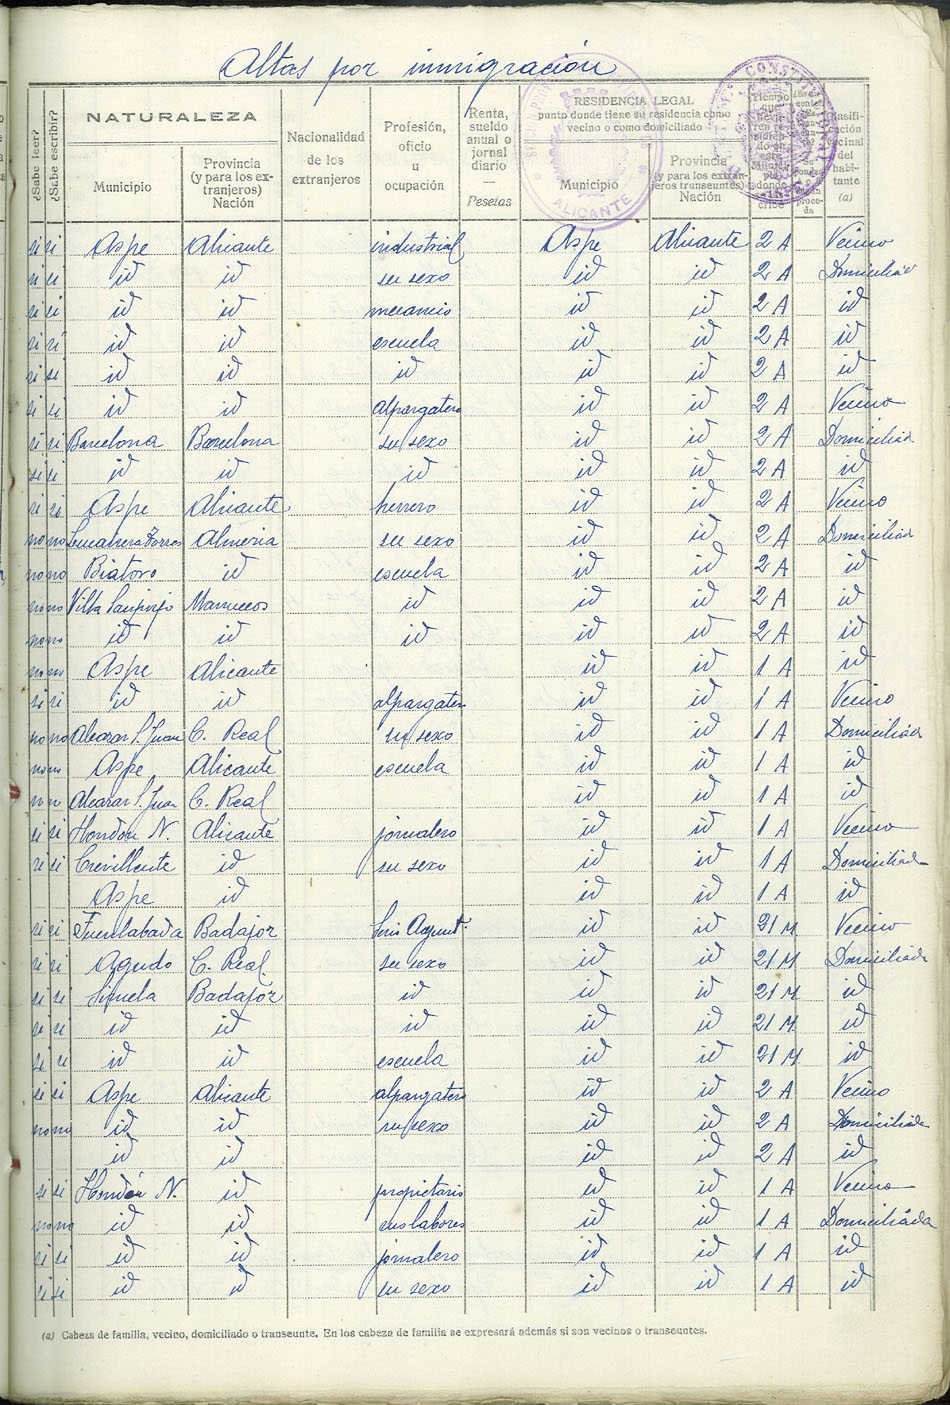 Altas por inmigración
¿Sabe leer? ¿Sabe escribir? NATURALEZA Municipio Provincia (y para los extranjeros) Nación Nacionalidad de los extranjeros Profesión, oficio u ocupación Renta, sueldo anual o jornal diario — Pesetas RESIDENCIA LEGAL punto donde tiene su residencia como vecino o como domiciliado Municipio Provincia (y para los extranjeros transeuntes) Nación habitante (a)
CONSTITUCIONAL
ALICANTE
si si Aspe Alicante industrial Aspe Alicante 2 A Vecino
si si id id su sexo id id 2 A Domiciliad
si si id id mecanico id id 2 A id
si si id id escuela id id 2 A id
si si id id id id id 2 A id
si si id id alpargatero id id 2 A Vecino
si si Barcelona Barcelona su sexo id id 2 A Domiciliad
si si id id id id id 2 A id
si si Aspe Alicante herrero id id 2 A Vecino
no no Almeria su sexo id id 2 A Domiciliad
no no id escuela id id 2 A id
no no Villa Sanjurjo Marruecos id id id 2 A id
no no id id id id id 2 A id
no no Aspe Alicante id id 1 A id
si si id id alpargatero id id 1 A Vecino
no no Alcazar S. Juan C. Real su sexo id id 1 A Domiciliad
no no Aspe Alicante escuela id id 1 A id
Alcazar S. Juan C. Real id id 1 A id
si si Hondón N. Alicante jornalero id id 1 A Vecino
si si Crevillente id su sexo id id 1 A Domiciliada
Aspe id id id 1 A id
si si Fuenlabrada Badajoz id id 21 M Vecino
si si Agudo C. Real su sexo id id 21 M Domiciliada
si si Siruela Badajoz id id id 21 M id
si si id id id id id 21 M id
si si id id escuela id id 21 M id
si si Aspe Alicante alpargatero id id 2 A Vecino
no no id id su sexo id id 2 A Domiciliada
id id id id 2 A id
si si Hondón N. id propietario id id 1 A Vecino
no no id id sus labores id id 1 A Domiciliada
si si id id jornalero id id 1 A id
si si id id su sexo id id 1 A id
(a) Cabeza de familia, vecino, domiciliado o transeunte. En los cabeza de familia se expresará además si son vecinos o transeuntes.